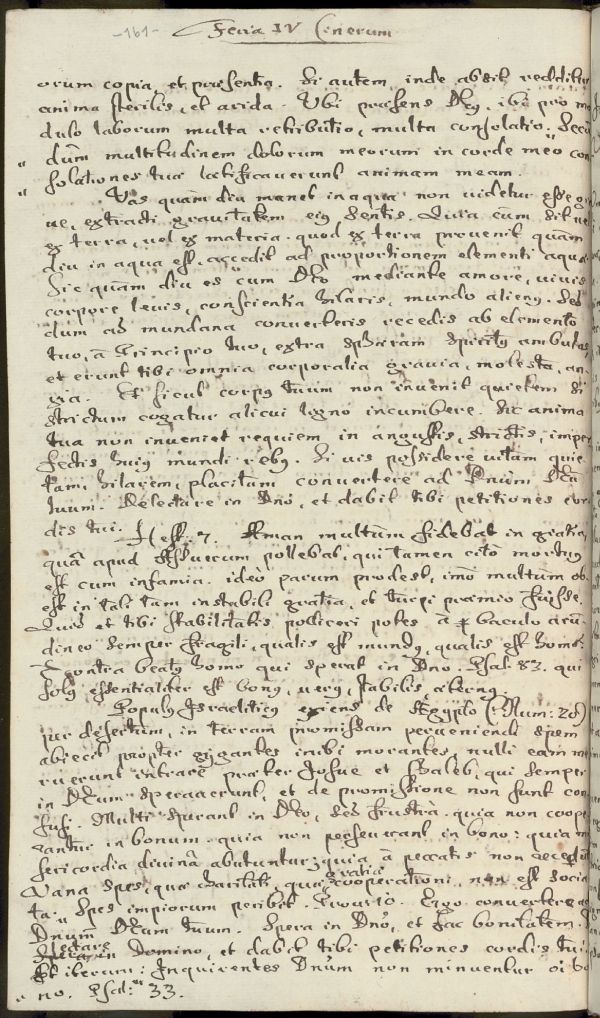 -161- Feria IV Cinerum
orum copia, et præsentia. Si autem inde absit redditur
anima sterilis, et arida. Ubi præsens Deus, ibi pro mo
dulo laborum multa retributio, multa consolatio. Secũ
" dũm multitudinem dolorum meorum in corde meo con
" solationes tuæ lætificaverunt animam meam.
Vas quàm diu manet in aqua non videtur esse gra
ve, extracti gravitatem ejus sentis. Quia cum sit vel
ex terra, vel ex materia quod ex terra provenit quàm
diu in aqua est, accedit ad proportionem elementi aquæ
Sic quàm diu es cum Deo mediante amore, vivis
corpore levis, conscientia hilaris, mundo alienus. Sed
dum ad mundana converteris recedis ab elemento
tuo, à Principio tuo, extra sphæram Spiritus ambulas,
et erunt tibi omnia corporalia gravia, molesta, an-
xia. Et sicut corpus tuum non invenit quietem si
strictum cogatur alicui ligno incumbere. Sic anima
tua non inveniet requiem in angustis, strictis, imper
fectis hujus mundi rebus. Si vis possidere vitam quie
tam, hilarem, placitam convertere ad Dnũm Deũ
tuum. Delectare in Dno, et dabit tibi petitiones cor
dis tui. Hest: 7. Aman multùm fidebat in gratia,
quâ apud Assuerum pollebat, qui tamen citò mortuus
est cum infamia. ideò parum prodest, imò multùm ob
est in tali tam instabili gratia, et turpi præmio fuisse.
Quid et tibi stabilitatis polliceri potes à baculo arũ-
dineo semper fragili, qualis est mundus, qualis est homo.
E contra beatus homo qui sperat in Dno. Psal. 83. qui
solus essentialiter est bonus, verus, stabilis, æternus.
Populus Israeliticus exiens de Ægypto (Num:
per desertum, in terram promissam perveniendi spem
abiecit propter gigantes inibi morantes, nulli eam me
ruerunt intrare præter Josue et Caleb, qui semper
in Deum speraverunt, et de promissione non sunt con
fusi. Multi sperant in Deo, sed frustrà. quia non coope
rantur in bonum. quia non perseverant in bono: quia mi
sericordia divinâ abutuntur; quia à peccatis non recedũt
Vana spes, quæ charitati, quæ gratiæ cooperationi, non est socia
ta. " Spes impiorum peribit. Ergo convertere ad
Dnum Deum tuum. Spera in Dno, et fac bonitatem.
lectare Domino, et dabit tibi petitiones cordis tui
Et iterum: Inquirentes Dnũm non minuentur oi bo
" no. Psal: 33.